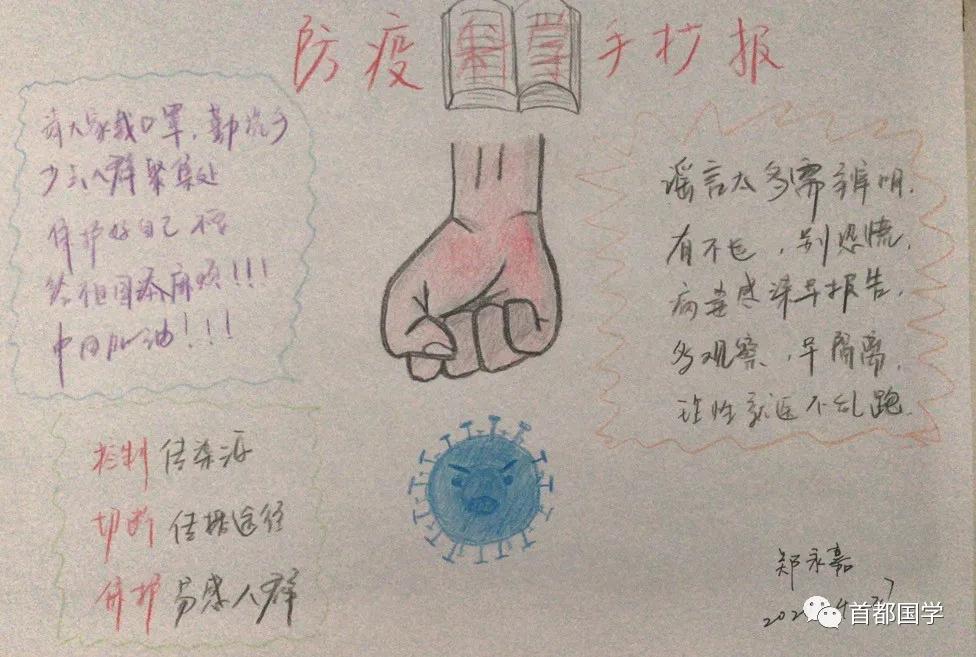 防疫科学手抄报
请大家戴口罩,勤洗手
少去人群聚集处
保护好自己 不
给祖国添麻烦!!!
中国加油!!!
谣言太多需辨明,
有不适,别恐慌,
病毒感染早报告,
多观察,早隔离,
就医不乱跑.
控制 传染源
切断 传播途径
保护 易感人群
郑永嘉
首都国学